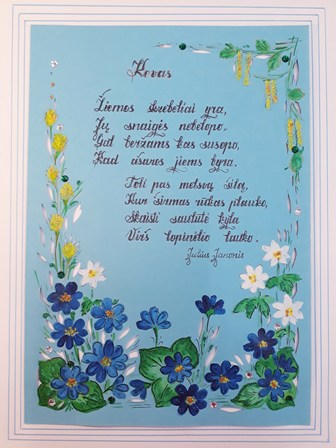 Kovas
Žiemos skrebėliai yra,
Jų snaigės nebetopo.
Gal beržams kas susopo,
Kad ašaros jiems byra.
Toli pas melsvą šilą,
Kur širmas rūkas plauko,
Skaisti saulutė kyla
Virš lopinėlio lauko.
Julius Janonis